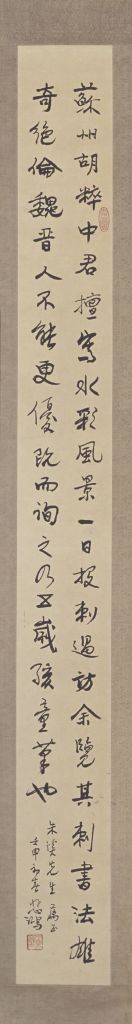 蘇州胡粹中君擅寫水彩風景一日投刺過訪余覽其刺書法雄
奇絕倫魏晉人不能更優既而詢之乃五歲孩童筆也
先生屬正
壬申初春悲鴻